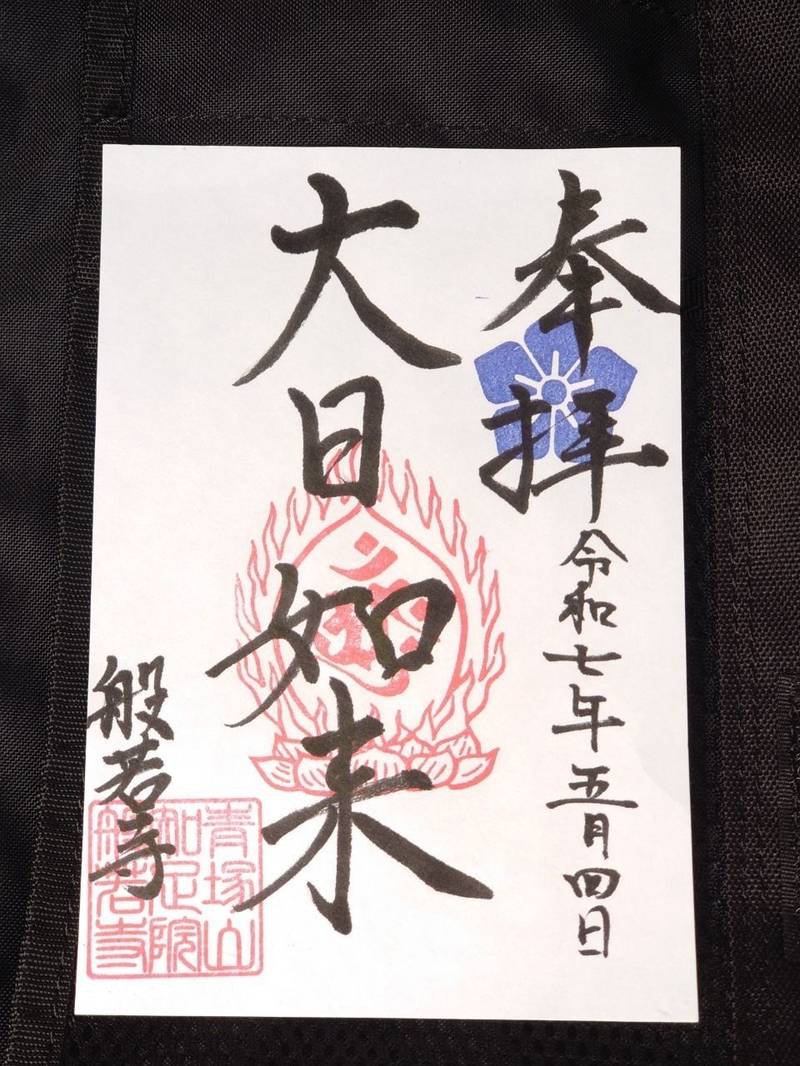 奉拝
令和七年五月四日
大日如来
般若寺
青塚山
知足院
般若寺